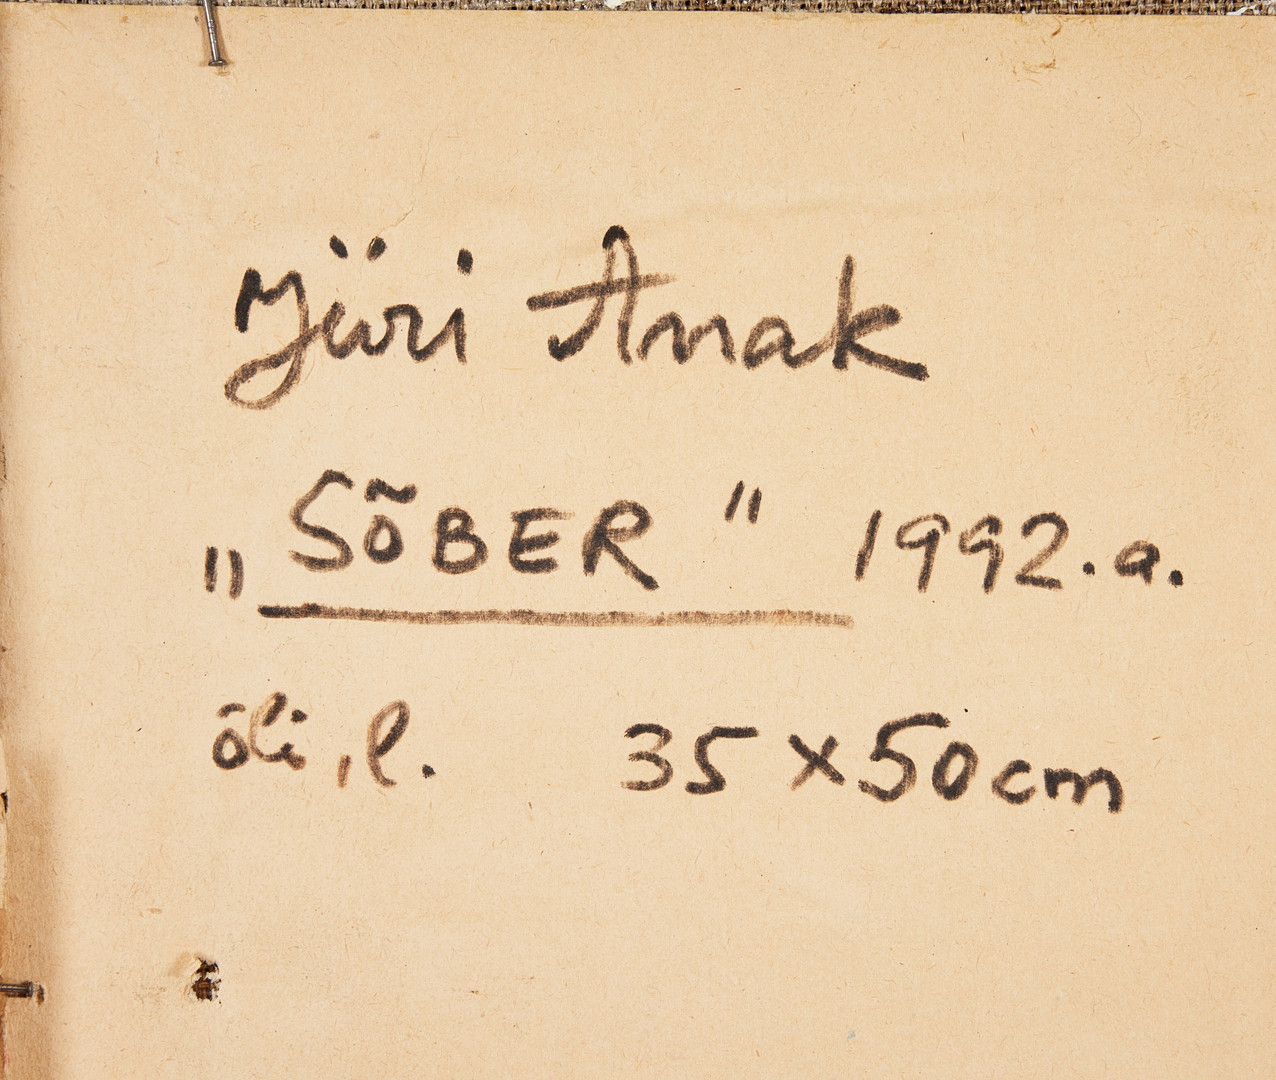 Jüri Arrak
„SÕBER" 1992.a.
õli, l. 35 x 50cm